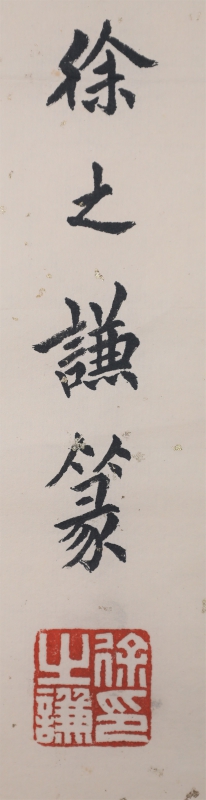 徐之謙篆
徐印之謙